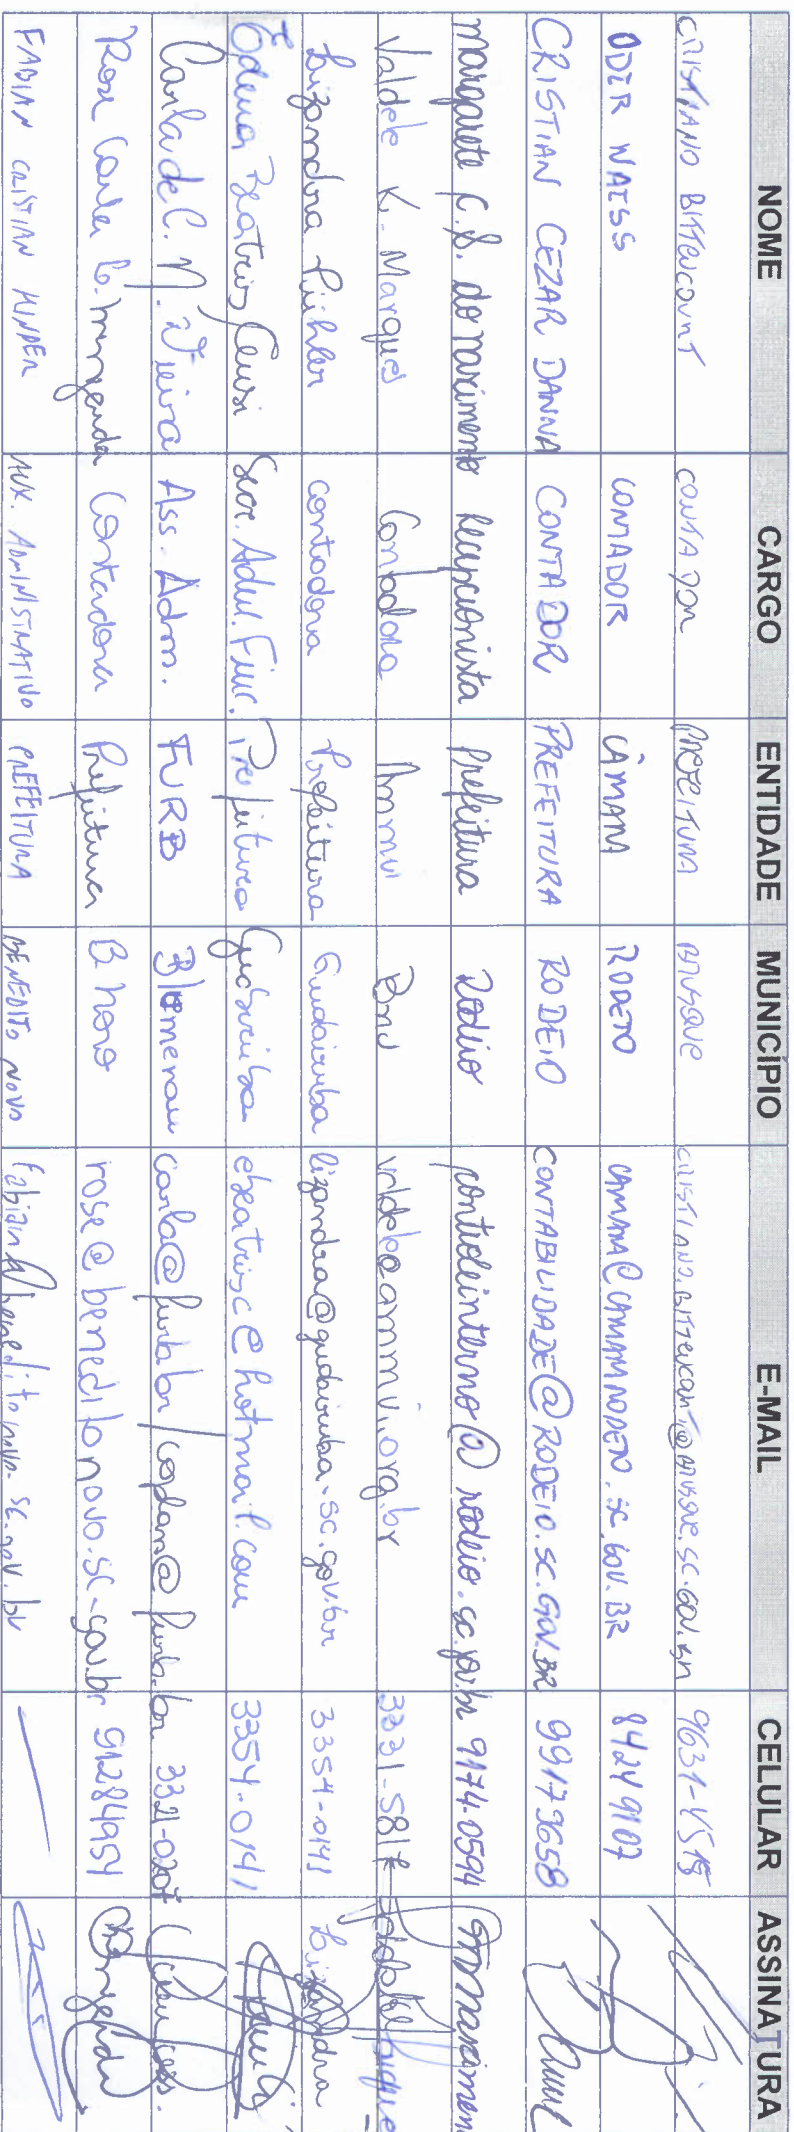 NOME CARGO ENTIDADE MUNICÍPIO E-MAIL CELULAR ASSINATURA
CRISTIANO BITTENCOURT CONTADOR PREFEITURA BRUSQUE 9631-4515
ODIR NAISS CONTADOR CÂMARA RODEIO CAMARA@CAMARARODEIO.SC.GOV.BR 84249107
CRISTIAN CEZAR DANNA CONTADOR PREFEITURA RODEIO CONTABILIDADE@RODEIO.SC.GOV.BR 99179658
Margarete C. S. do nascimento recepcionista prefeitura Rodeio controleinterno@rodeio.sc.gov.br 9174.0594
Valdete K. Marques Contadora Ammvi Bnu valdete@ammvi.org.br 3331-5817
Lizandra Pühler contadora Prefeitura Guabiruba lizandra@guabiruba.sc.gov.br 3354-0141 Lizandra
Edena Beatris Censi Secr. Adm. Finc. Prefeitura Guabiruba ebeatrisc@hotmail.com 3354-0141
Carla de C. N. Vieira Ass. Adm. FURB Blumenau carla@furb.br/coplan@furb.br 3321-0207
Rose Carla Contadora Prefeitura B novo rose@beneditonovo.sc-gov.br 91284954
FABIAN CRISTIAN KINDER AUX. ADMINISTRATIVO PREFEITURA BENEDITO NOVO fabian@beneditonovo.sc.gov.br